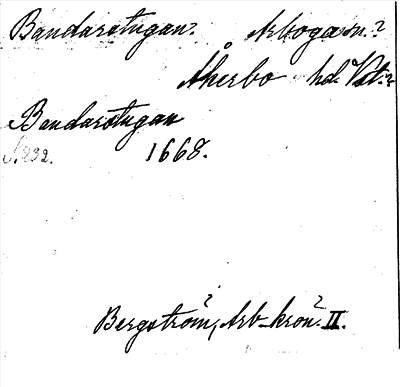 Bandarstugan? Arboga sn.?
Åkerbo hd. Vstm.?
Bandarstugan
S. 232. 1668.
Bergström, Arb_krön. II.